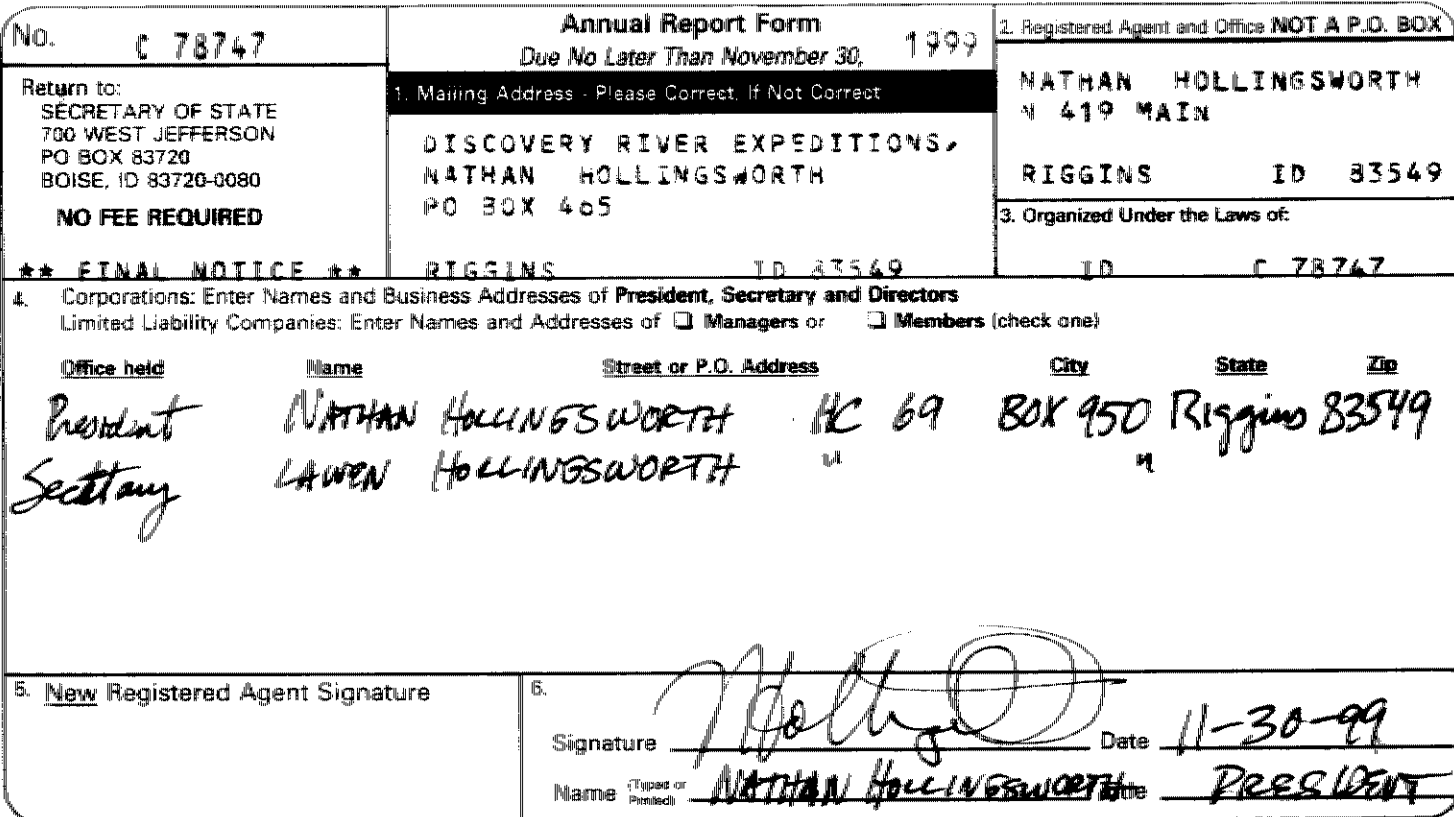 No. C 78747
Return to:
SECRETARY OF STATE
700 WEST JEFFERSON
PO BOX 83720
BOISE, ID 83720-0080
NO FEE REQUIRED
** FINAL NOTICE **
Annual Report Form
Due No Later Than November 30, 1999
1. Mailing Address - Please Correct, If Not Correct
DISCOVERY RIVER EXPEDITIONS,
NATHAN HOLLINGSWORTH
PO BOX 465
RIGGINS ID 83549
2. Registered Agent and Office NOT A P.O. BOX
NATHAN HOLLINGSWORTH
N 419 MAIN
RIGGINS ID 83549
3. Organized Under the Laws of:
ID C 78747
4. Corporations: Enter Names and Business Addresses of President, Secretary and Directors
Limited Liability Companies: Enter Names and Addresses of ☐ Managers or ☐ Members (check one)
Office held Name Street or P.O. Address City State Zip
President NATHAN HOLLINGSWORTH HC 69 BOX 950 Riggins 83549
Secretary HOLLINGSWORTH " "
5. New Registered Agent Signature
6.
Signature Date 11-30-99
Name (Typed or Printed) NATHAN HOLLINGSWORTH PRESIDENT